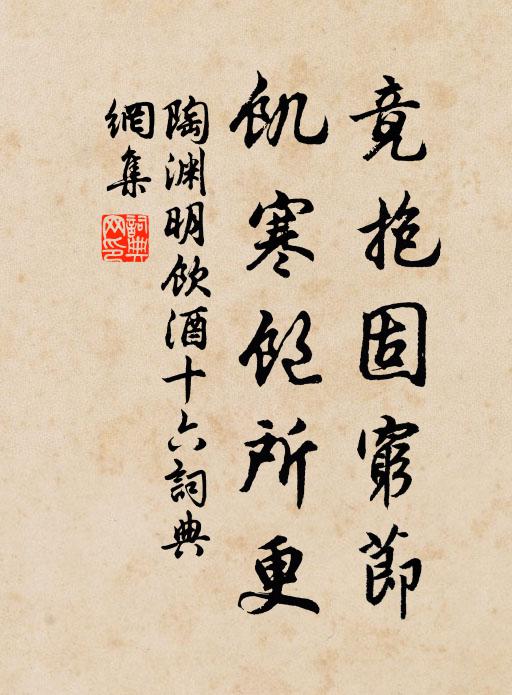 竟抱固窮節
飢寒飽所更
陶渊明飲酒十六詞典
網集
詞典網印